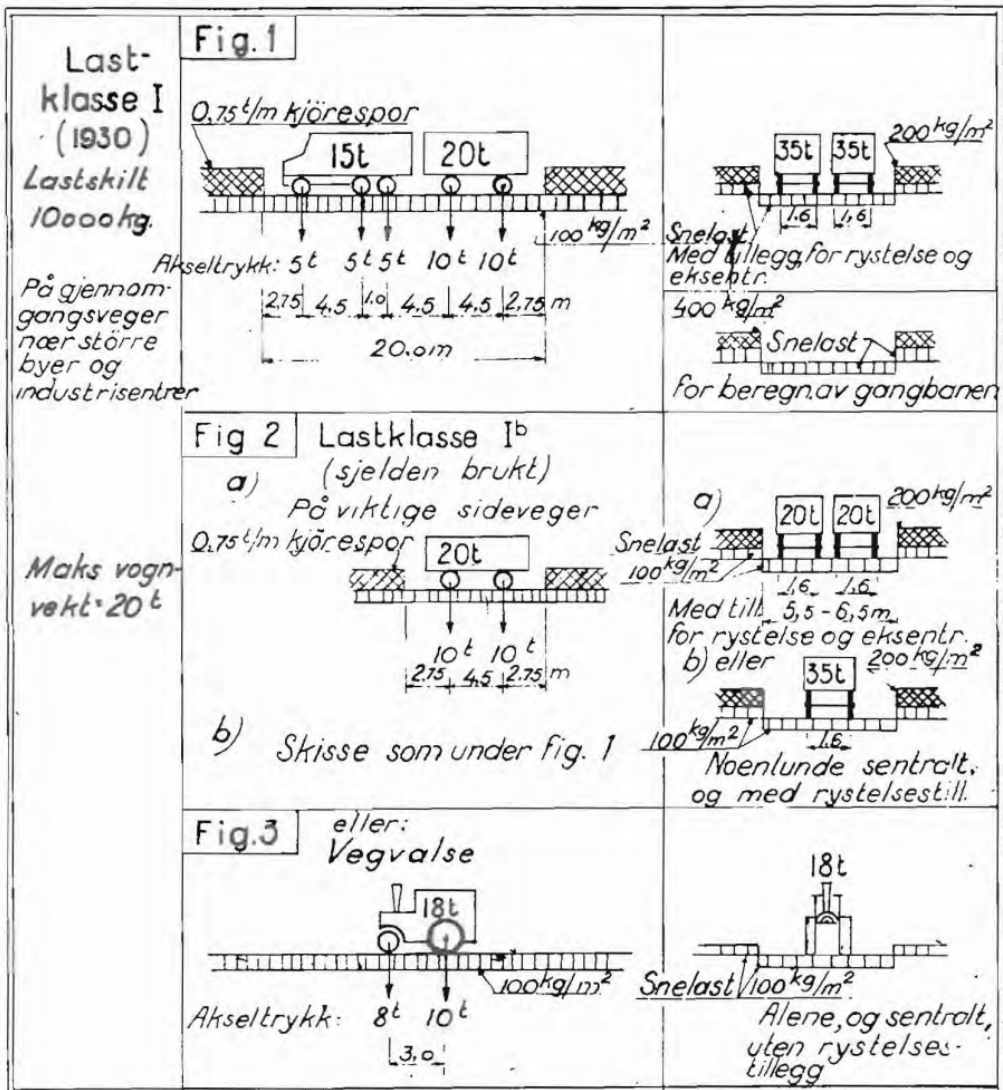 Last-
klasse I
(1930)
Lastskilt
10000 kg.
På gjennom-
gangsveger
nær större
byer og
industrisentrer
Maks vogn-
vekt: 20 t
Fig. 1
0,75 t/m kjörespor
15t
20t
100 kg/m²
Akseltrykk: 5t 5t 5t 10t 10t
2.75 4,5 1.0 4,5 4,5 2,75 m
20.0m
200 kg/m²
35t 35t
1.6 1,6
Snelast
Med tillegg for rystelse og
eksentr.
400 kg/m²
Snelast
for beregn.av gangbanen
Fig 2
Lastklasse Iᵇ
(sjelden brukt)
a)
På viktige sideveger
0.75 t/m kjörespor
20t
10t 10t
2.75 4,5 2.75 m
b) Skisse som under fig. 1
a)
200 kg/m²
20t 20t
Snelast
100 kg/m²
1,6 1,6
Med till. 5,5 - 6,5m
for rystelse og eksentr.
b) eller 200 kg/m²
35t
100 kg/m²
1.6
Noenlunde sentralt,
og med rystelsestill.
Fig. 3
eller:
Vegvalse
18t
100 kg/m²
Akseltrykk: 8t 10t
3,0
18t
Snelast 100 kg/m²
Alene, og sentralt,
uten rystelses-
tillegg